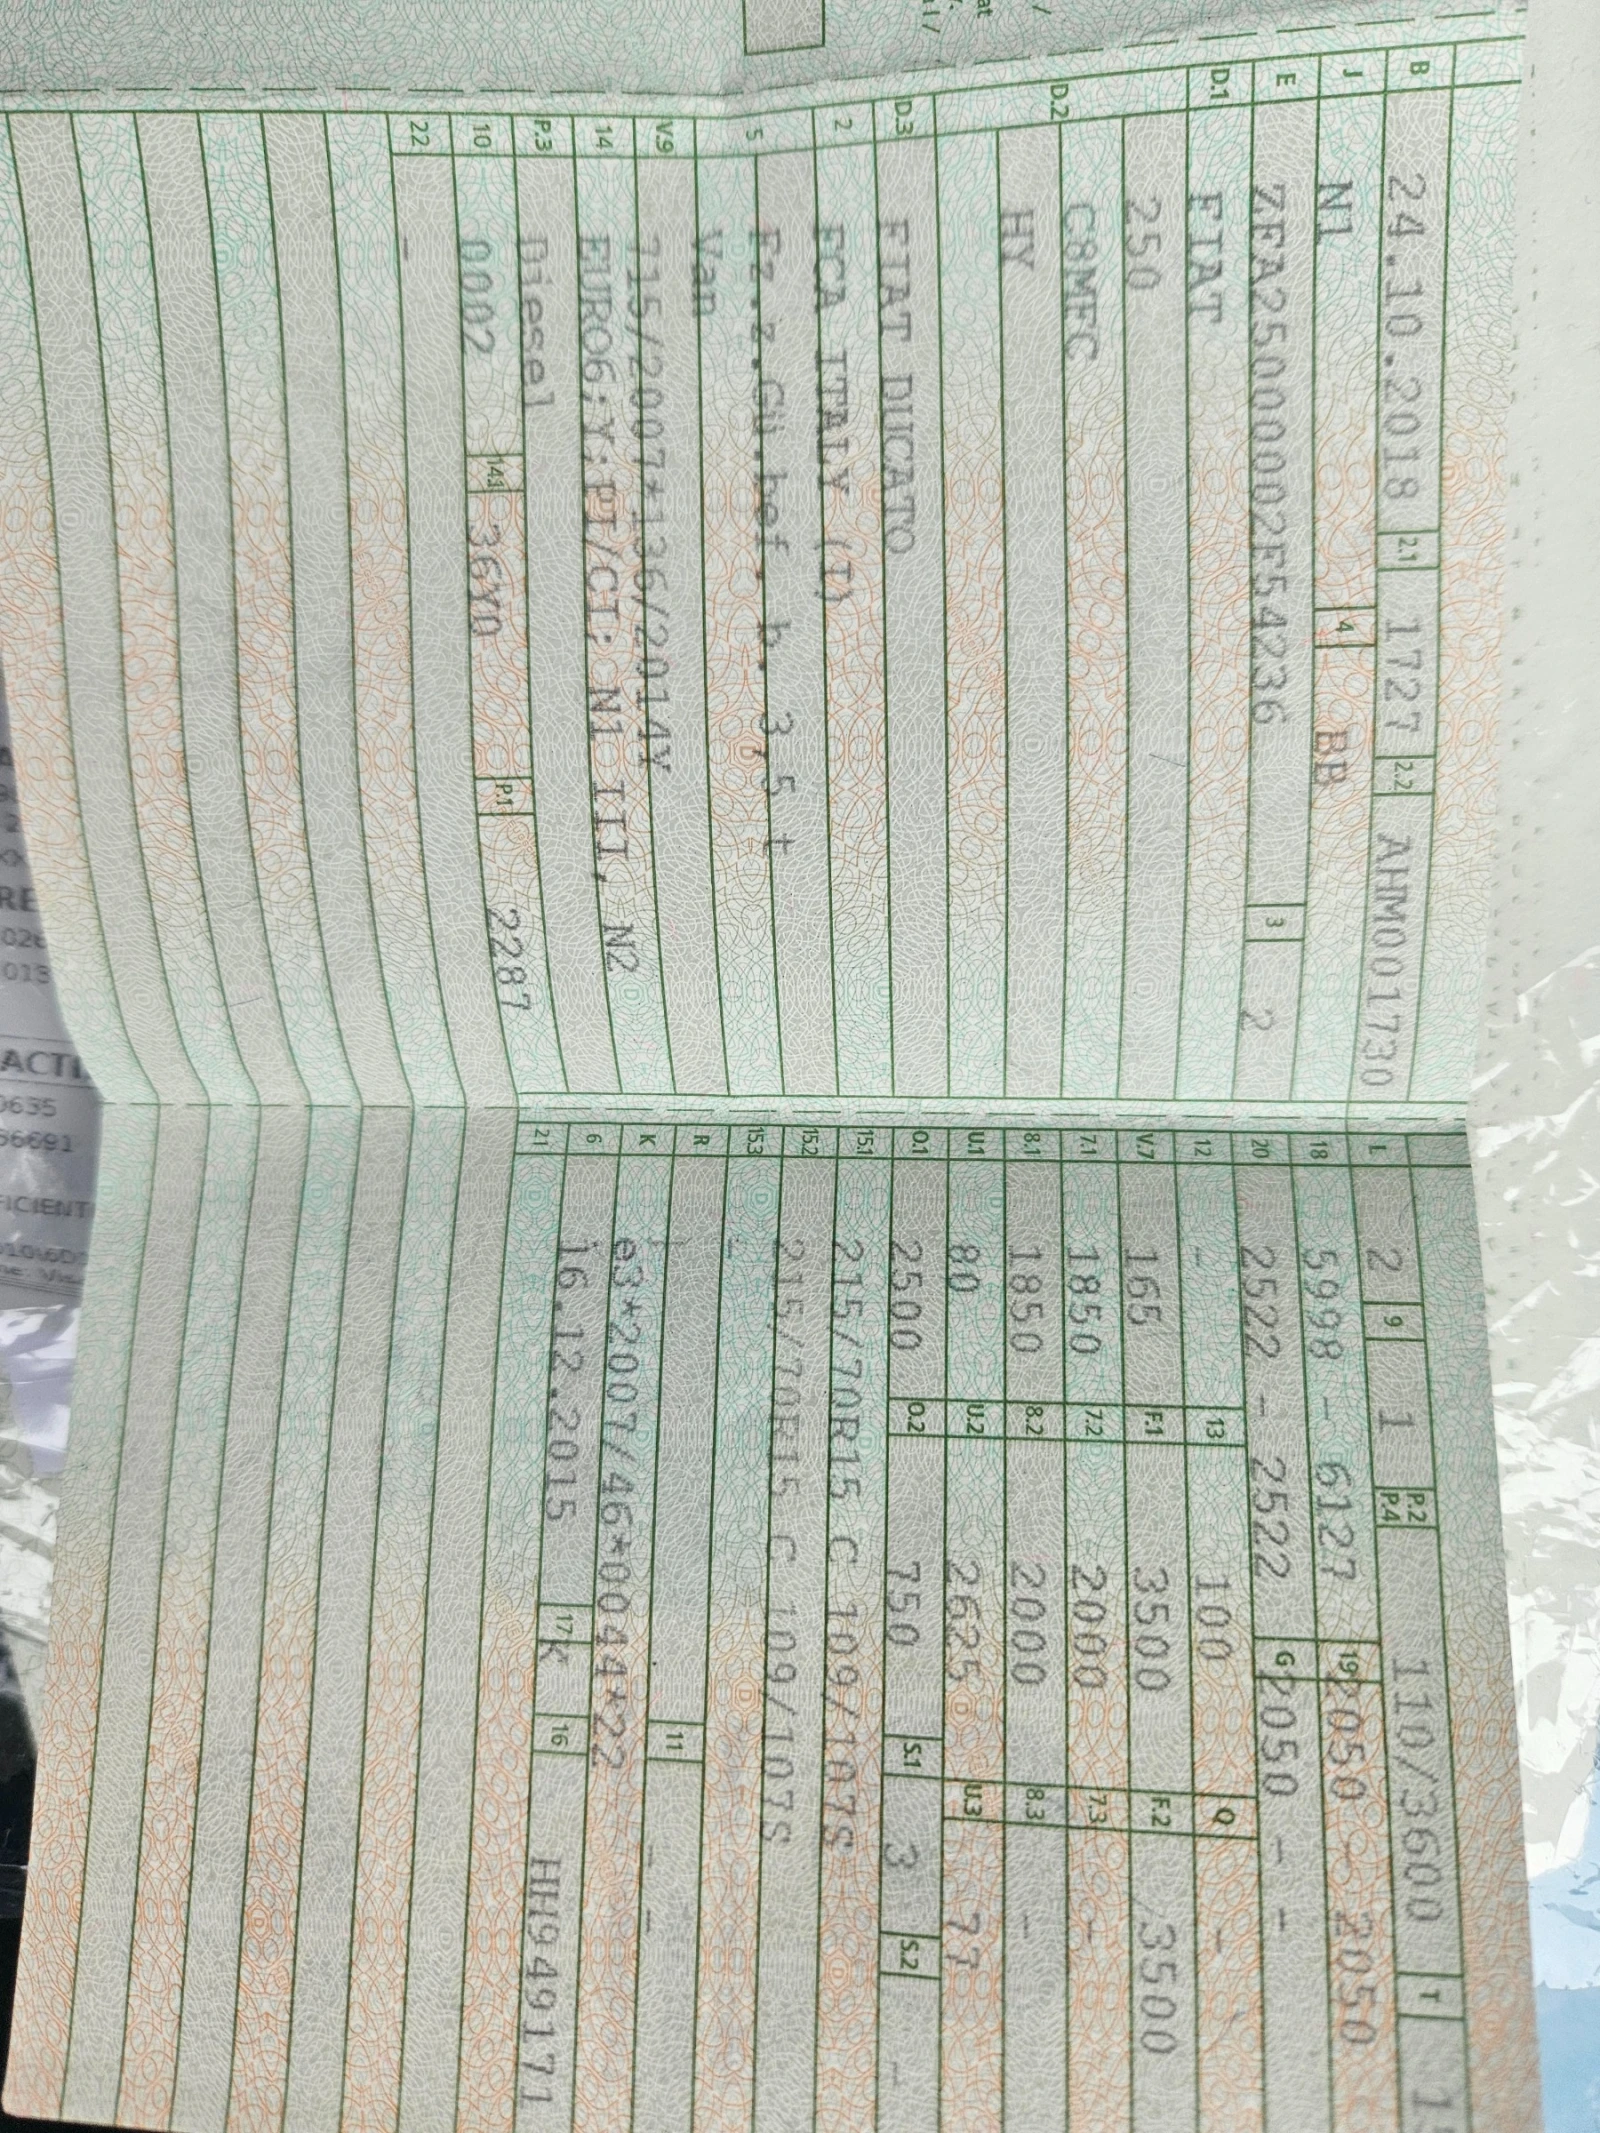 B 24.10.2018 2.1 1727 2.2 AHM001730
J N1 4 BB
E ZFA25000002F54236 3 2
D.1 FIAT
D.2 250
C8MFC
HY
D.3 FIAT DUCATO
2 FCA ITALY (I)
5 Fz.z.Gü.bef. b. 3,5 t
Van
V.9 715/2007*136/2014Y
14 EURO6;Y;PI/CI; N1 III, N2
P.3 Diesel
10 0002 14.1 36Y0 P.1 2287
22 -
L 2 9 1 P.2 P.4 110/3600 T
18 5998 - 6127 19 2050 - 2050
20 2522 - 2522 G 2050 - -
12 - 13 100 Q -
V.7 165 F.1 3500 F.2 3500
7.1 1850 7.2 2000 7.3 -
8.1 1850 8.2 2000 8.3 -
U.1 80 U.2 2625 U.3 77
O.1 2500 O.2 750 S.1 3 S.2 -
15.1 215/70R15 C 109/107S
15.2 215/70R15 C 109/107S
15.3 -
R 11 -
K e3*2007/46*0044*22 -
6 16.12.2015 17 K 16 HH949171
21
ACTI
0635
56691
FICIENT
RE
026
015